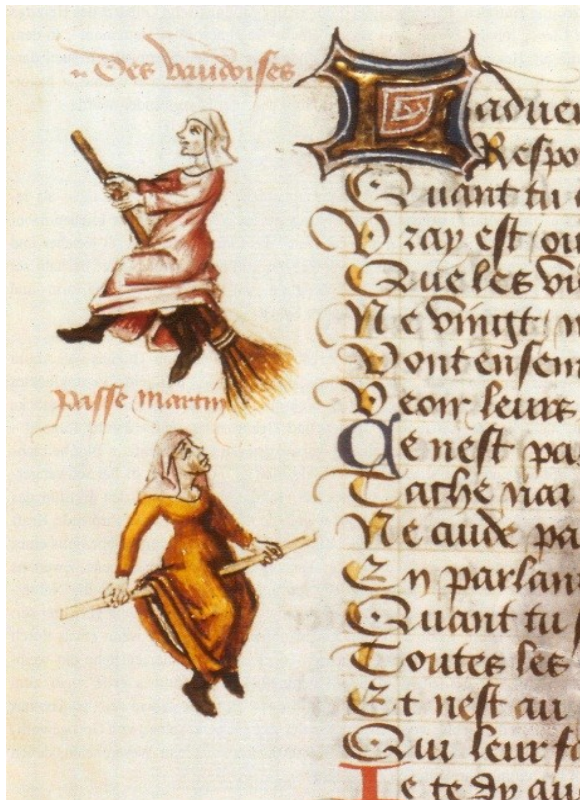 Des vaudoises
passe martin
Laduer
Respo
Quant tu
Vray est ou
Que les vi
Ne vingt
Vont ensem
Veoir leurs
Ce nest pa
Tache nai
Ne aude pa
En parlan
Quant tu
Toutes les
Et nest au
Qui leur fa
Je te dy au